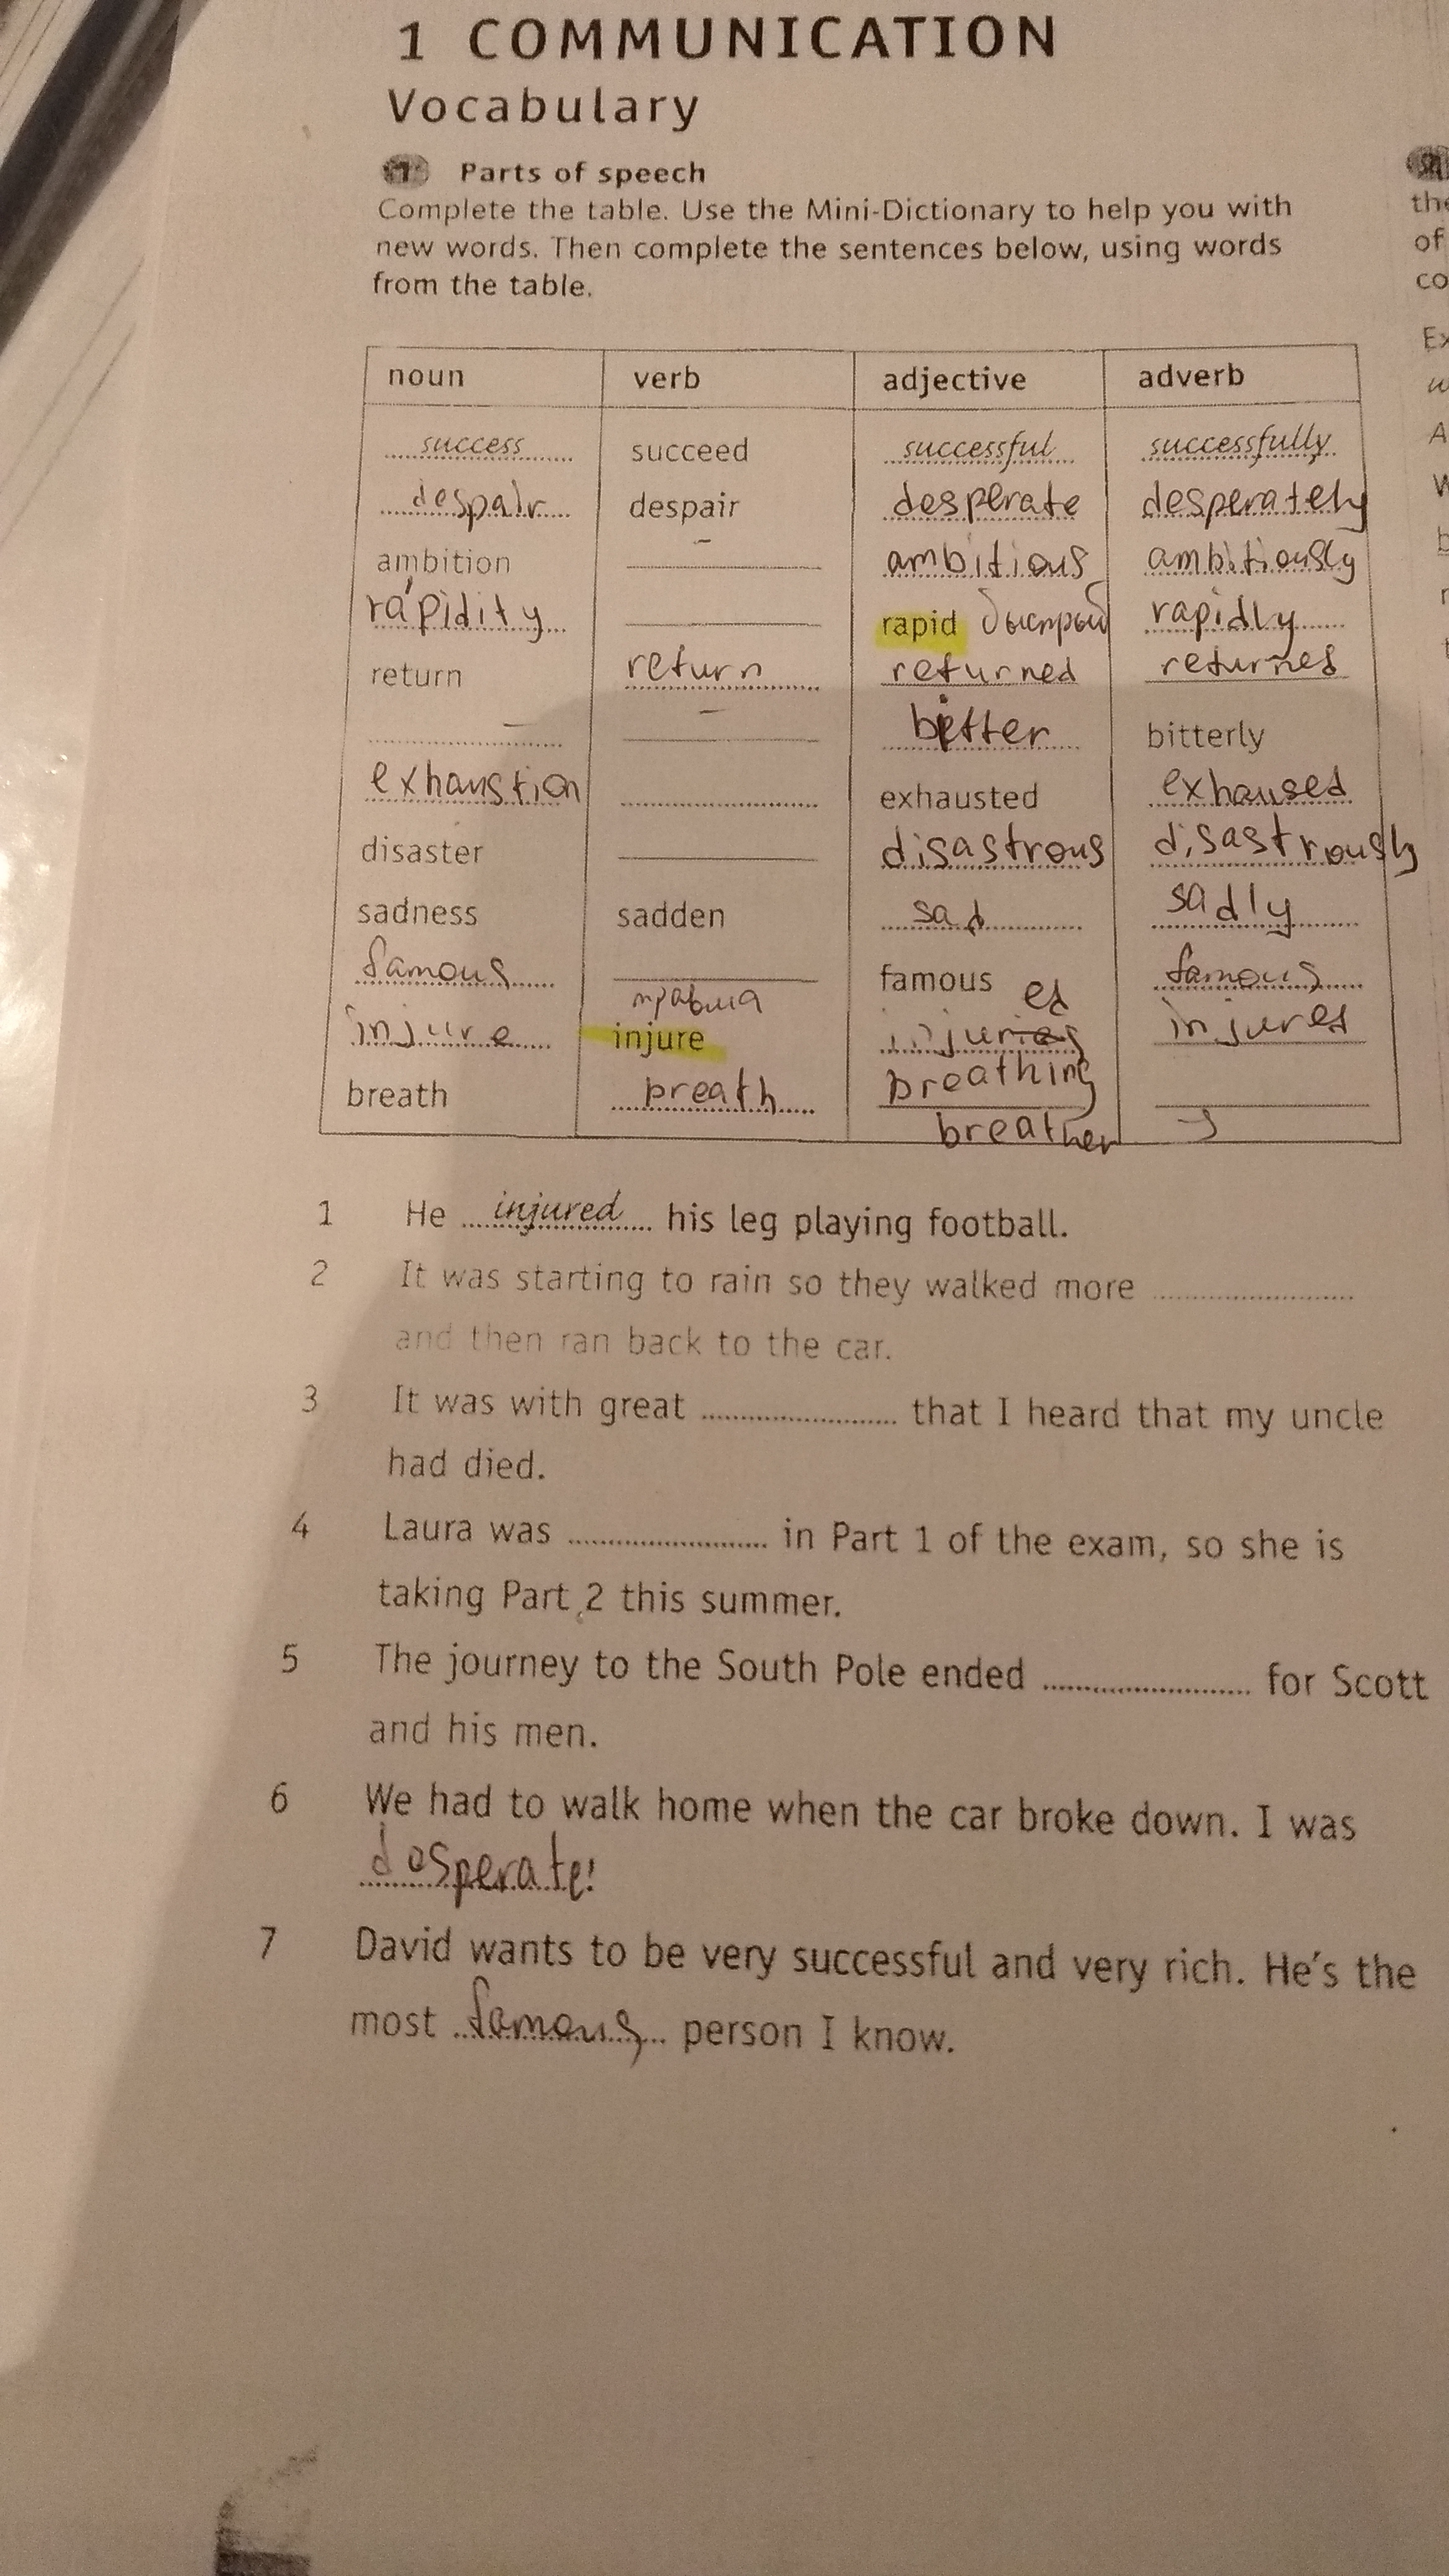 1 COMMUNICATION
Vocabulary
1 Parts of speech
Complete the table. Use the Mini-Dictionary to help you with
new words. Then complete the sentences below, using words
from the table.
noun verb adjective adverb
success succeed successful successfully
despair despair desperate desperately
ambition – ambitious ambitiously
rapidity rapid быстрый rapidly
return return returned returned
– – bitter bitterly
exhaustion exhausted exhaused
disaster disastrous disastrously
sadness sadden sad sadly
famous famous famous
травма ed
injure injure injures
breath breath breathing
breather
1 He injured his leg playing football.
2 It was starting to rain so they walked more ........................
and then ran back to the car.
3 It was with great ........................ that I heard that my uncle
had died.
4 Laura was ........................ in Part 1 of the exam, so she is
taking Part 2 this summer.
5 The journey to the South Pole ended ........................ for Scott
and his men.
6 We had to walk home when the car broke down. I was
desperate!
7 David wants to be very successful and very rich. He's the
most famous person I know.
the
of
co
Ex
A
W